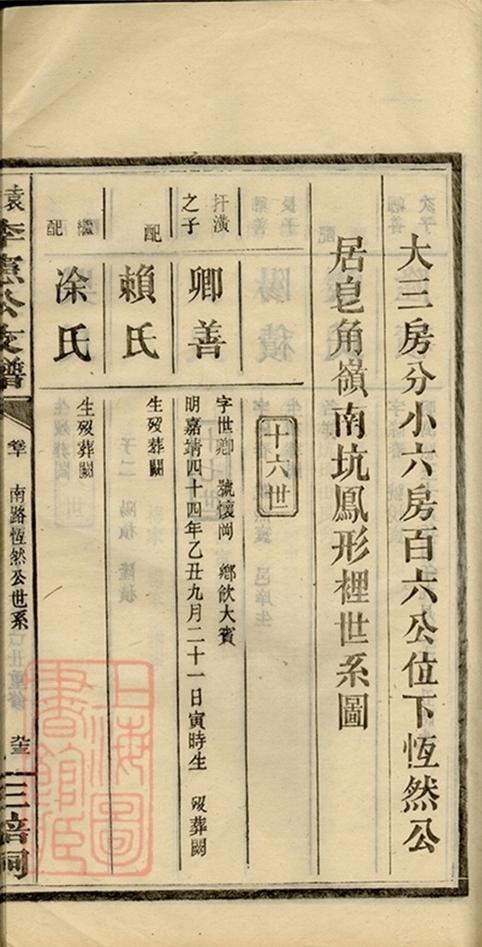 大三房分小六房百六公位下恆然公
居皂角嶺南坑鳳形裡世系圖
十六世
扞潢
之子
卿善
字世卿 號懷岡 鄉飲大賓
明嘉靖四十四年乙丑九月二十一日寅時生 歿葬闕
配
賴氏
生歿葬闕
繼
配
凃氏
生歿葬闕
袁 李憲公支譜
南路恆然公世系
三培祠
上海圖
書館藏